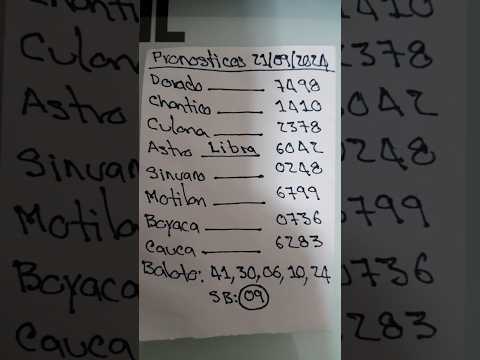 Pronosticos 21/09/2024
Dorado 7498
Chontico 1410
Culona 2378
Astro Libra 6042
Sinuano 0248
Motilon 6799
Boyaca 0736
Cauca 6283
Baloto: 41, 30, 06, 10, 24
SB: 09